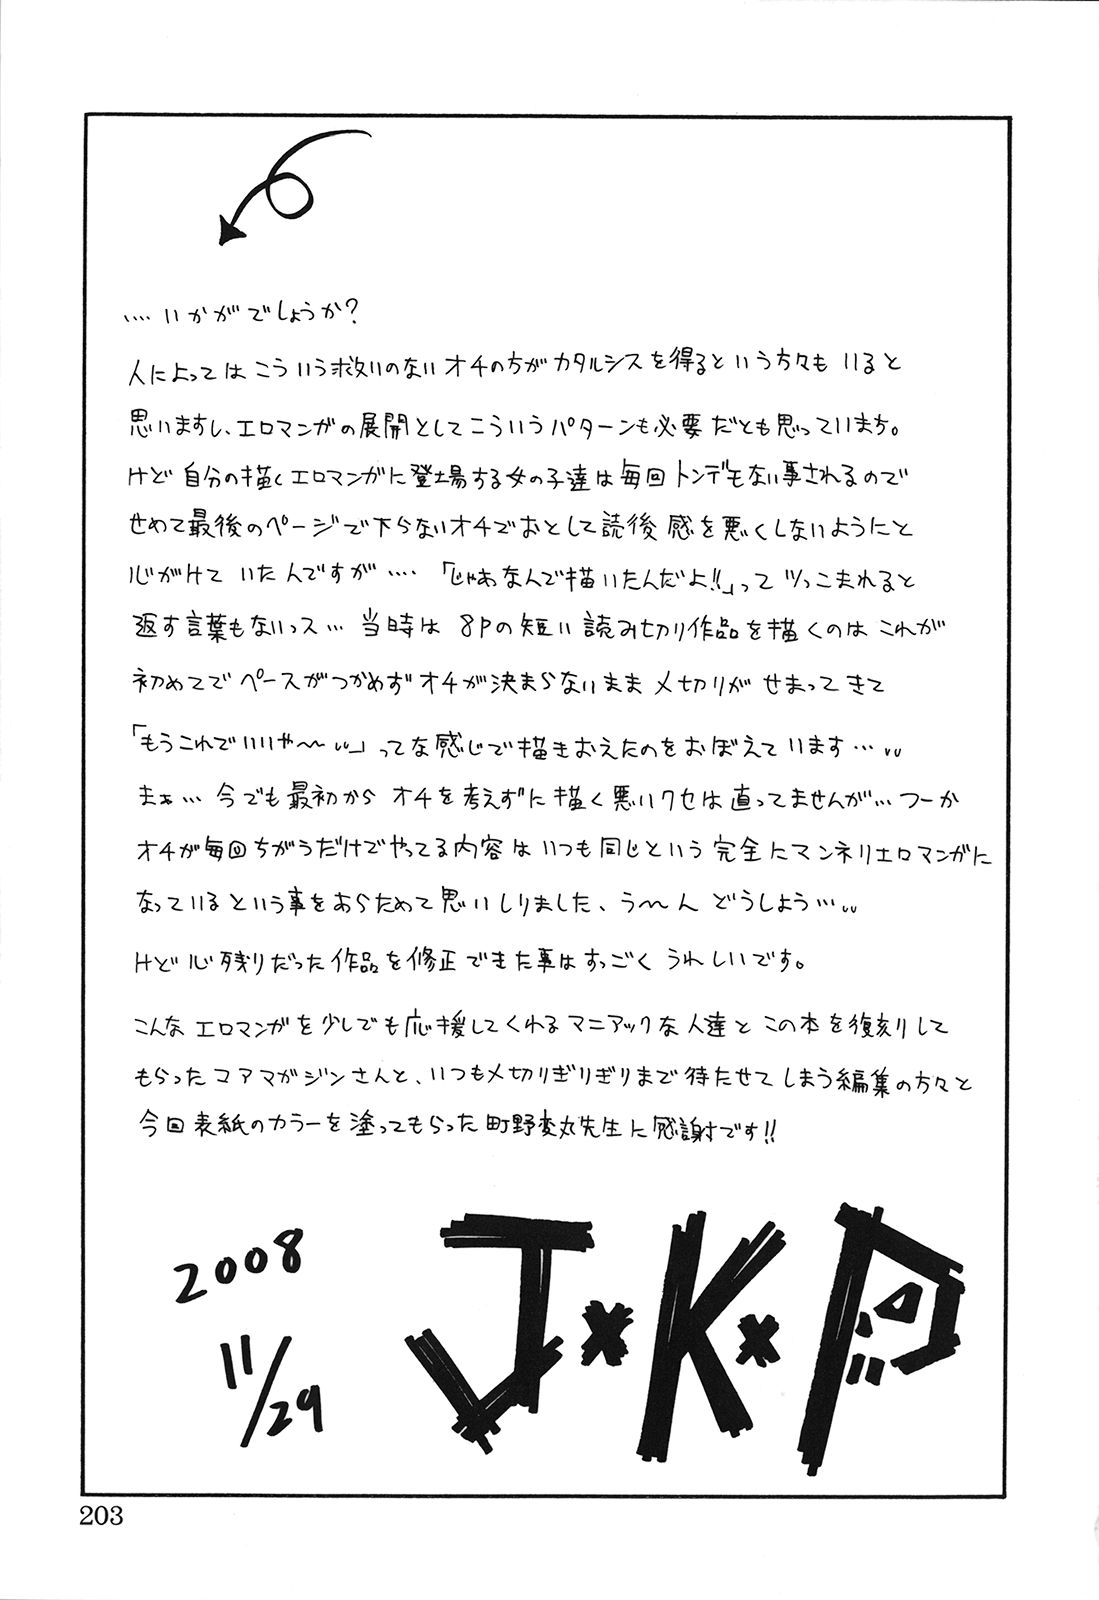 ‥‥いかがでしょうか?
人によってはこういう救いのないオチの方がカタルシスを得るという方々もいると
思いますし、エロマンガの展開としてこういうパターンも必要だとも思っています。
けど自分の描くエロマンガに登場する女の子達は毎回トンデモない事されるので
せめて最後のページで下らないオチでおとして読後感を悪くしないようにと
心がけていたんですが‥‥「じゃあなんで描いたんだよ!!」ってツっこまれると
返す言葉もないっス…当時は8Pの短い読み切り作品を描くのはこれが
初めてでペースがつかめずオチが決まらないまま〆切りがせまってきて
「もうこれでいいや〜〜」ってな感じで描きおえたのをおぼえています…
まぁ…今でも最初からオチを考えずに描く悪いクセは直ってませんが…つーか
オチが毎回ちがうだけでやってる内容はいつも同じという完全にマンネリエロマンガに
なっているという事をあらためて思いしりました、う〜んどうしよう…
けど心残りだった作品を修正できた事はすっごくうれしいです。
こんなエロマンガを少しでも応援してくれるマニアックな人達とこの本を復刻して
もらったコアマガジンさんと、いつも〆切りぎりぎりまで待たせてしまう編集の方々と
今回表紙のカラーを塗ってもらった町野変丸先生に感謝です!!
2008
11/29
J×K×P
203